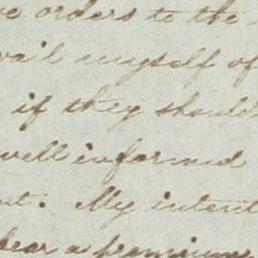 ve orders to the
vail myself of
if they should
well informed
nt. My intent
bear a premium